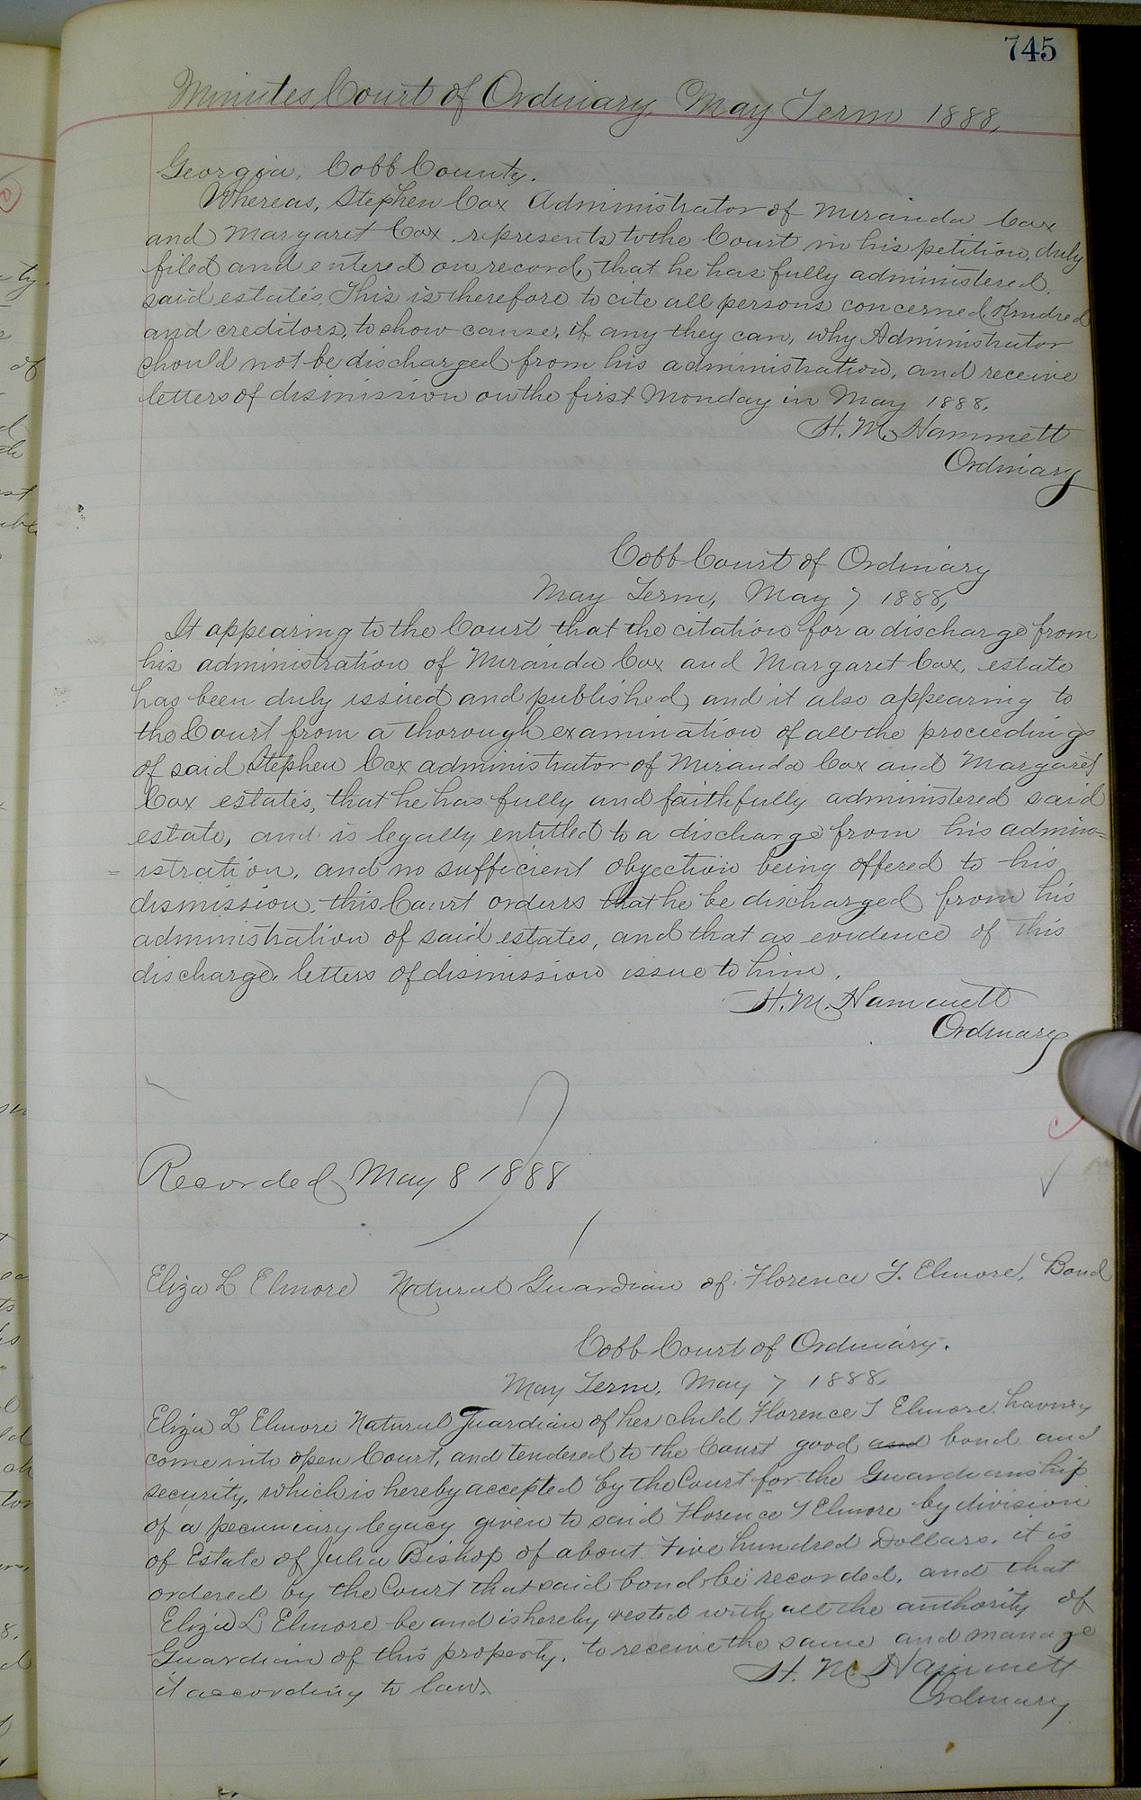 745
Minutes Court of Ordinary, May Term 1888,
Georgia, Cobb County.
Whereas, Stephen Cox Administrator of Miranda Cox
and Margaret Cox represents to the Court in his petition, duly
filed and entered on record, that he has fully administered
said estates, This is therefore to cite all persons concerned, Kindred
and creditors, to show cause, if any they can, why Administrator
should not be discharged from his administration, and receive
letters of dismission on the first Monday in May 1888.
H. M. Hammett
Ordinary
Cobb Court of Ordinary
May Term, May 7 1888,
It appearing to the Court that the citation for a discharge from
his administration of Miranda Cox and Margaret Cox, estate
has been duly issued and published, and it also appearing to
the Court from a thorough examination of all the proceedings
of said Stephen Cox administrator of Miranda Cox and Margaret
Cox estates, that he has fully and faithfully administered said
estate, and is legally entitled to a discharge from his admin=
=istration, and no sufficient objection being offered to his
dismission, this Court orders that he be discharged from his
administration of said estates, and that as evidence of this
discharge, letters of dismission issue to him.
H. M. Hammett
Ordinary
Recorded May 8 1888
Eliza L Elmore Natural Guardian of Florence T. Elmore, Bond
Cobb Court of Ordinary.
May Term, May 7 1888,
Eliza L Elmore Natural Guardian of her child Florence T Elmore having
come into open Court, and tendered to the Court good and bond and
security, which is hereby accepted by the Court for the Guardianship
of a pecuniary legacy given to said Florence T Elmore by division
of Estate of Julia Bishop of about Five hundred Dollars. it is
ordered by the Court that said bond be recorded, and that
Eliza L Elmore be and is hereby vested with all the authority of
Guardian of this property, to receive the same and manage
it according to law.
H. M. Hammett
Ordinary